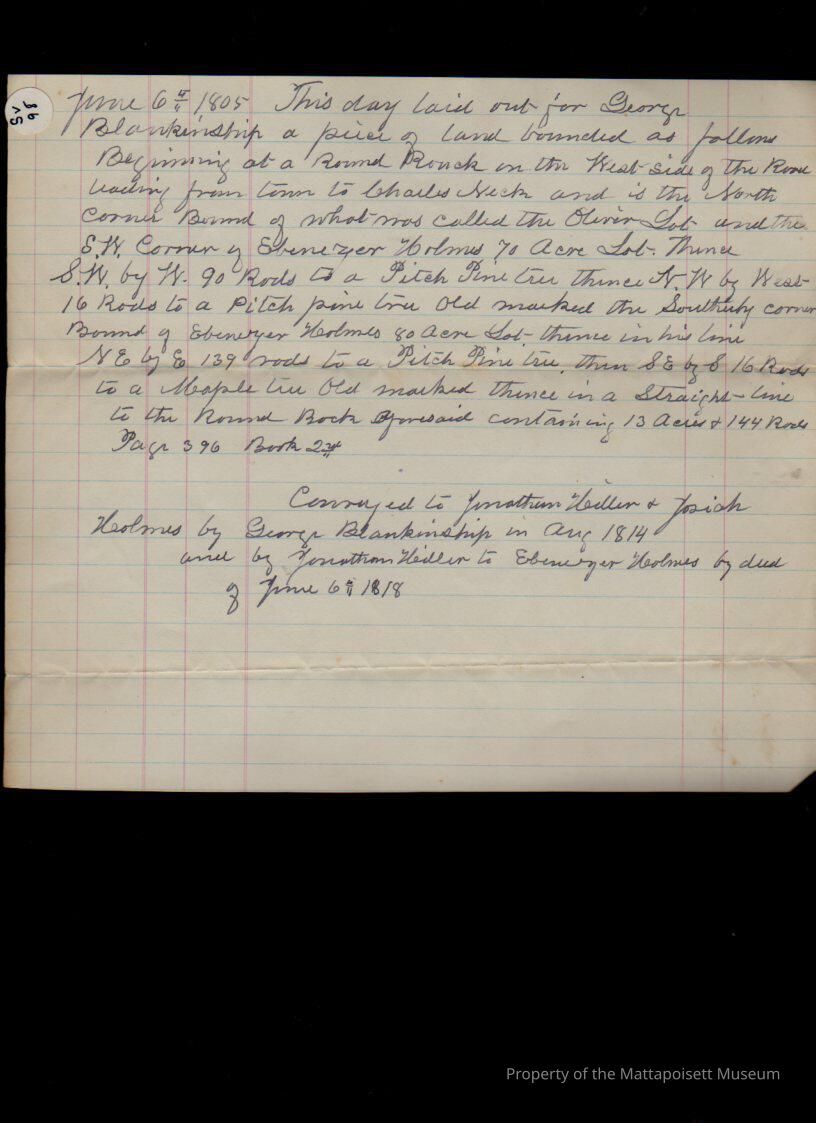 June 6th 1805 This day laid out for George
Blankinship a piece of land bounded as follows
Beginning at a Round Rouck on the West side of the Road
leading from town to Charles Neck and is the North
Corner Bound of what was called the Oliver Lot and the
S.W. Corner of Ebenezer Holmes 70 Acre Lot. Thence
S.W. by W. 90 Rods to a Pitch Pine tree thence N.W by West
16 Rods to a Pitch pine tree Old marked the Southerly corner
Bound of Ebenezer Holmes 80 Acre Lot thence in his line
N E by E 139 rods to a Pitch Pine tree, then S E by S 16 Rods
to a Maple tree Old marked thence in a Straight-line
to the Round Rock aforesaid containing 13 Acres & 144 Rods
Page 396 Book 2nd
Conveyed to Jonathan Hiller & Josiah
Holmes by George Blankinship in Aug 1814
and by Jonathan Hiller to Ebenezer Holmes by deed
of June 6th 1818
Property of the Mattapoisett Museum